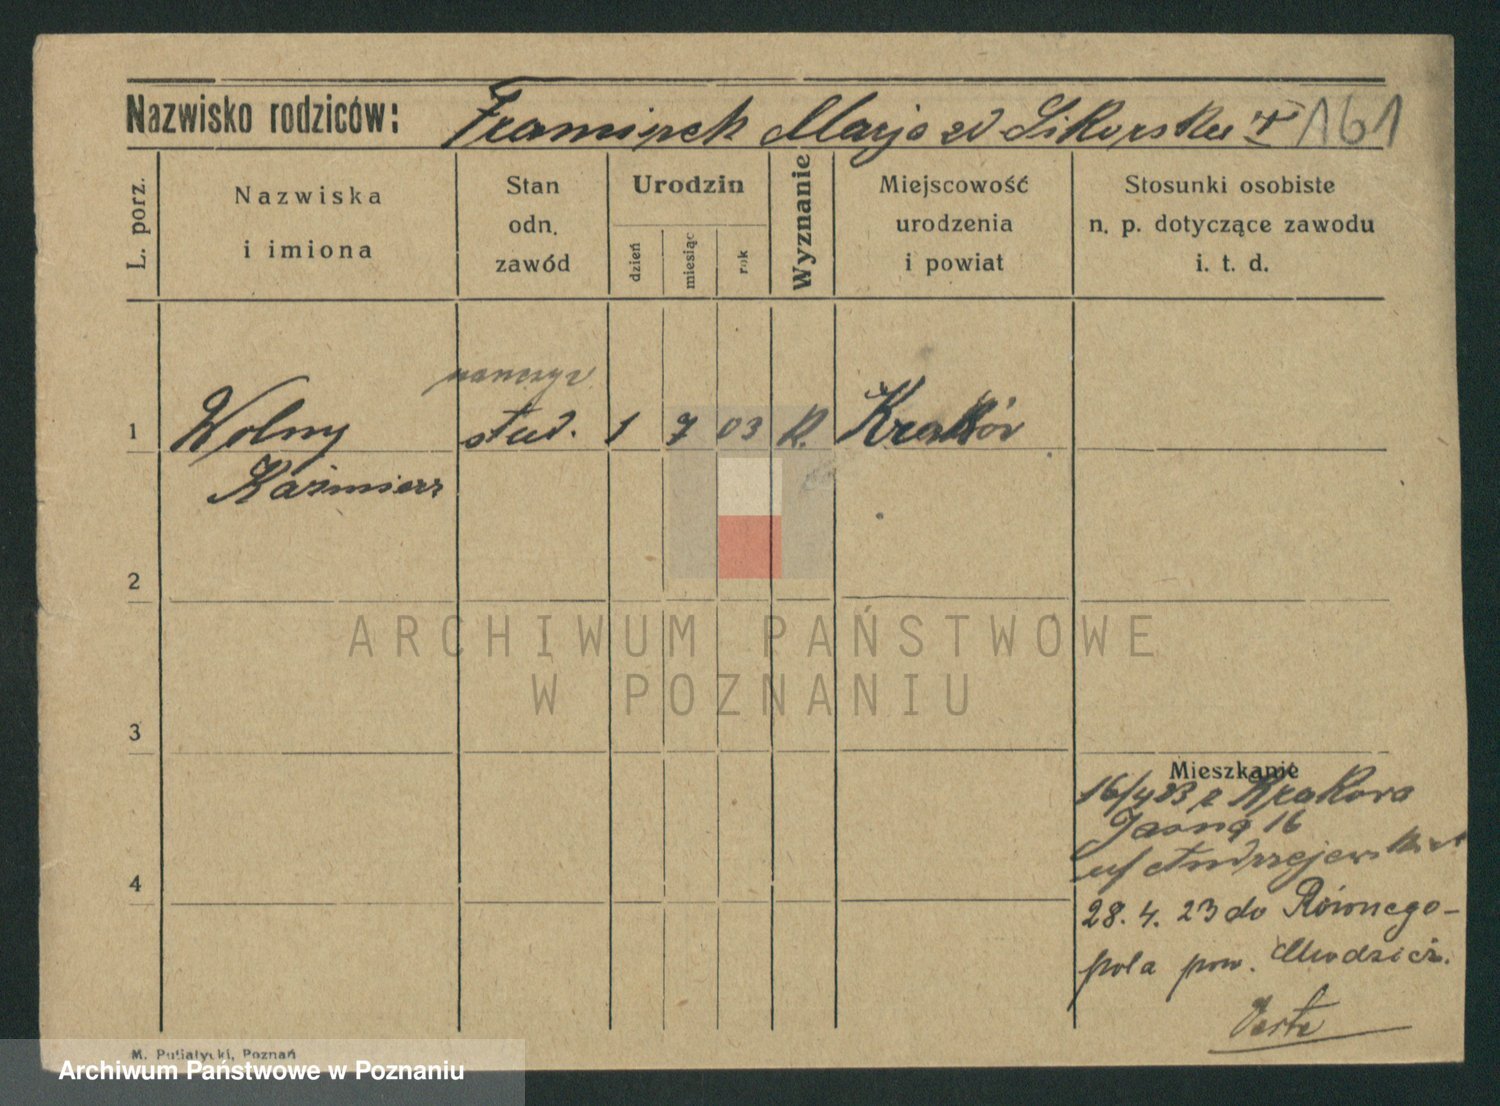 Nazwisko rodziców: Franciszek Marja zd Sikorska 161
L. porz.
Nazwiska
i imiona
Stan
odn.
zawód
Urodzin
dzień
miesiąc
rok
Wyznanie
Miejscowość
urodzenia
i powiat
Stosunki osobiste
n. p. dotyczące zawodu
i. t. d.
1 Wolny stud. 1 7 03 R. Kraków
Kaźmierz
2
3
4
Mieszkanie
16/4 23 z Krakowa
Jasna 16
28. 4. 23 do Równego-
pola pow.
Verte
M. Putiatycki, Poznań
ARCHIWUM PAŃSTWOWE
W POZNANIU
Archiwum Państwowe w Poznaniu